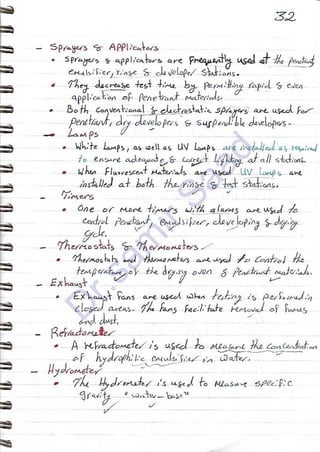 32
- Sprayers & Applicators
• Sprayers & applicators are Frequently used at the penetrant
emulsifier, rinse & developer stations.
• They decrease test time by permitting rapid & even
application of penetrant materials.
• Both conventional & electrostatic sprayers are used for
penetrant, dry developers & suspendible developers.
- Lamps
• White lamps, as well as UV lamps are installed as required
to ensure adequate & correct lighting at all stations.
• When Fluorescent materials are used UV lamps are
installed at both the rinse & test stations.
- Timers
• One or more timers with alarms are used to
control Penetrant, emulsifier, developing & drying
cycle.
- Thermostats & Thermometers
• Thermostats and thermometers are used to control the
temperature of the drying oven & Penetrant materials.
- Exhaust
Exhaust Fans are used when testing is performed in
closed areas. The fans facilitate removal of fumes
and dust.
- Refractometer
• A refractometer is used to measure the concentration
of hydrophilic emulsifier in water.
- Hydrometer
• The Hydrometer is used to measure specific
gravity "water-base"